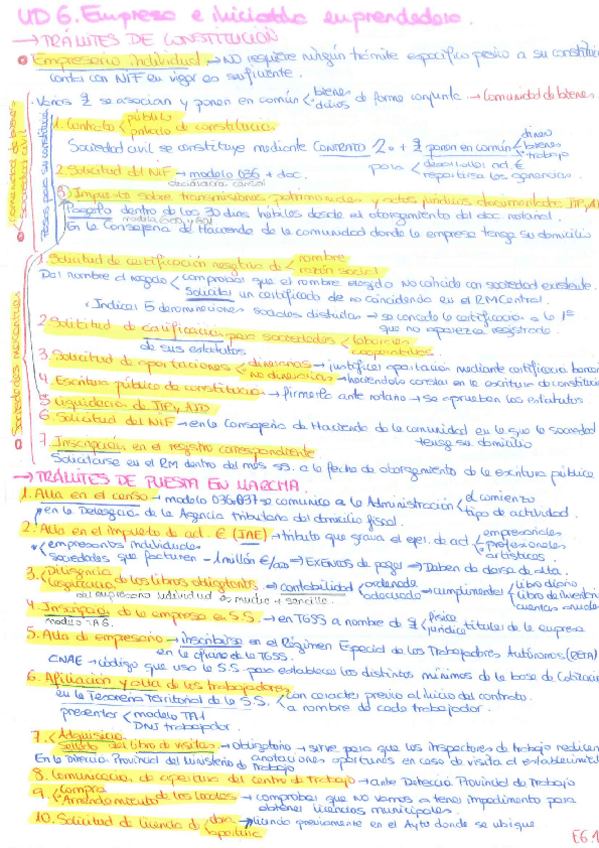 UD 6. Empresa e iniciativa emprendedora.
→ TRÁMITES DE CONSTITUCIÓN
Empresario individual → NO requiere ningún trámite específico previo a su constitución
contar con NIF en vigor es suficiente.
Varias se asocian y ponen en común < bienes de forme conjunta → Comunidad de bienes.
Comunidad de bienes
Sociedad civil
1. Contrato < público privado de constitución
Sociedad civil se constituye mediante CONTRATO 2 o + ponen en común < dinero bienes trabajo
para < desarrollar act € repartirse las ganancias.
2. Solicitud del NIF → modelo 036 + doc.
declaración censal
3) Impuesto sobre transmisiones patrimoniales y actos jurídicos documentados
dentro de los 30 días hábiles desde el otorgamiento del doc notarial.
En la Consejería de Hacienda de la comunidad donde la empresa tenga su domicilio
Sociedades mercantiles
1. Solicitud de certificación negativa de < nombre razón social
Del nombre elegido < comprobar que el nombre elegido NO coincida con sociedad existente.
Solicitar un certificado de no coincidencia en el RMCentral.
Indicar 5 denominaciones sociales distintas → se concede la certificación a la 1ª
que no aparezca registrada.
2. Solicitud de calificación para sociedades < laborales cooperativas
de sus estatutos
3. Solicitud de aportaciones < dinerarias → justificar aportación mediante certificación
no dinerarias → haciéndolo constar en la escritura de constitución
4. Escritura pública de constitución → firmarlo ante notario → se aprueban los estatutos
5. Liquidación de ITP y AJD
6. Solicitud del NIF → en la Consejería de Hacienda de la comunidad en la que la sociedad
tenga su domicilio
7. Inscripción en el registro correspondiente
Solicitarse en el RM dentro del mes ss. a la fecha de otorgamiento de la escritura pública
→ TRÁMITES DE PUESTA EN MARCHA.
1. Alta en el censo → modelo 036, 037 → se comunica a la Administración < el comienzo tipo de actividad
en la Delegación de la Agencia tributaria del domicilio fiscal.
2. Alta en el impuesto de act. € (IAE) → tributo que grava el ejer. de act < empresariales profesionales artísticas.
< empresarios individuales
sociedades que facturen - 1 millón €/año => Exentos de pagar => Deben darse de alta.
3. < Diligencia Legalización de los libros obligatorios. → contabilidad < ordenada adecuada → cumplimentar < libro diario libro de inventarios cuentas anuales
el empresario individual es mucho + sencillo.
4. Inscripción de la empresa en S.S. → en TGSS a nombre de < física jurídica titular de la empresa
modelo TA6
5. Alta de empresario → inscribirse en el Régimen Especial de los Trabajadores Autónomos (RETA)
en la oficina de la TGSS.
CNAE → código que usa la S.S para establecer los distintos mínimos de la base de cotización
6. Afiliación y alta de los trabajadores
en la Tesorería Territorial de la S.S. < con carácter previo al inicio del contrato. a nombre de cada trabajador.
presentar < modelo TA1
DNI trabajador.
7. < Adquisición sellado del libro de visitas → obligatorio → sirve para que los inspectores de trabajo realicen
En la Dirección Provincial del Ministerio de trabajo anotaciones oportunas en caso de visita al establecimiento
8. Comunicación de apertura del centro de trabajo → ante Dirección Provincial de Trabajo
9. < Compra Arrendamiento de los locales → comprobar que no vamos a tener impedimento para
obtener licencias municipales.
10. Solicitud de licencia de < obra apertura → previamente en el Ayto donde se ubique.
E6.1